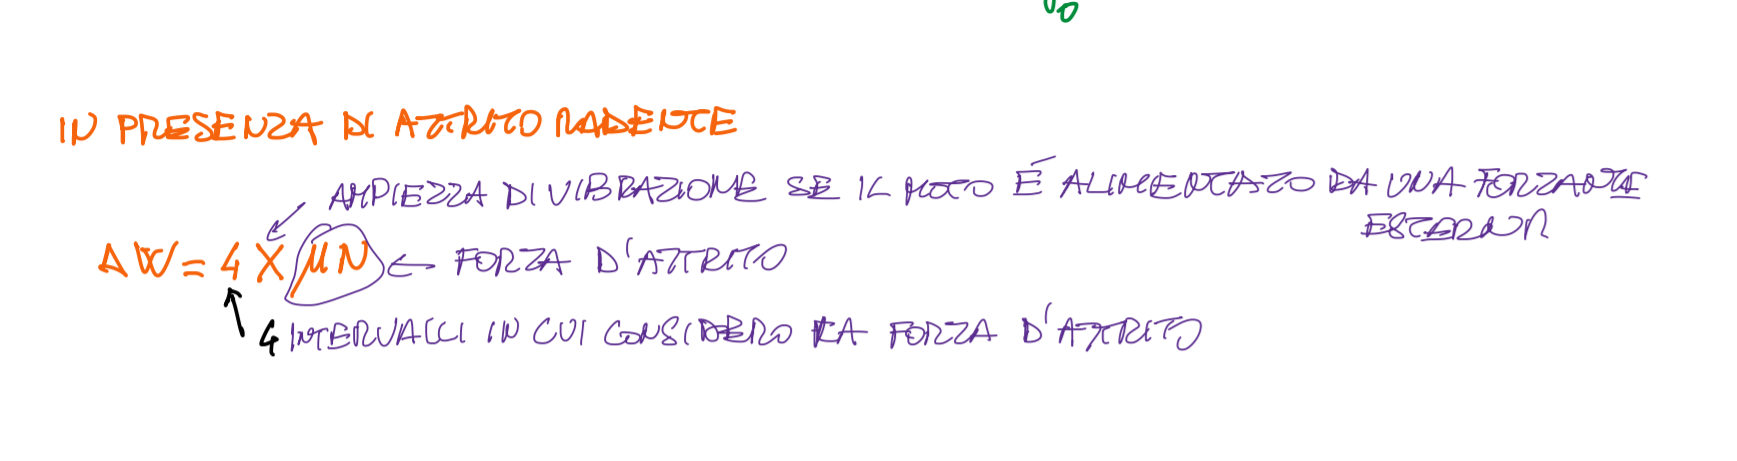 IN PRESENZA DI ATTRITO RADENTE
AMPIEZZA DI VIBRAZIONE SE IL MOTO É ALIMENTATO DA UNA FORZANTE
ESTERNA
ΔW = 4 X μN ← FORZA D'ATTRITO
4 INTERVALLI IN CUI CONSIDERO LA FORZA D'ATTRITO